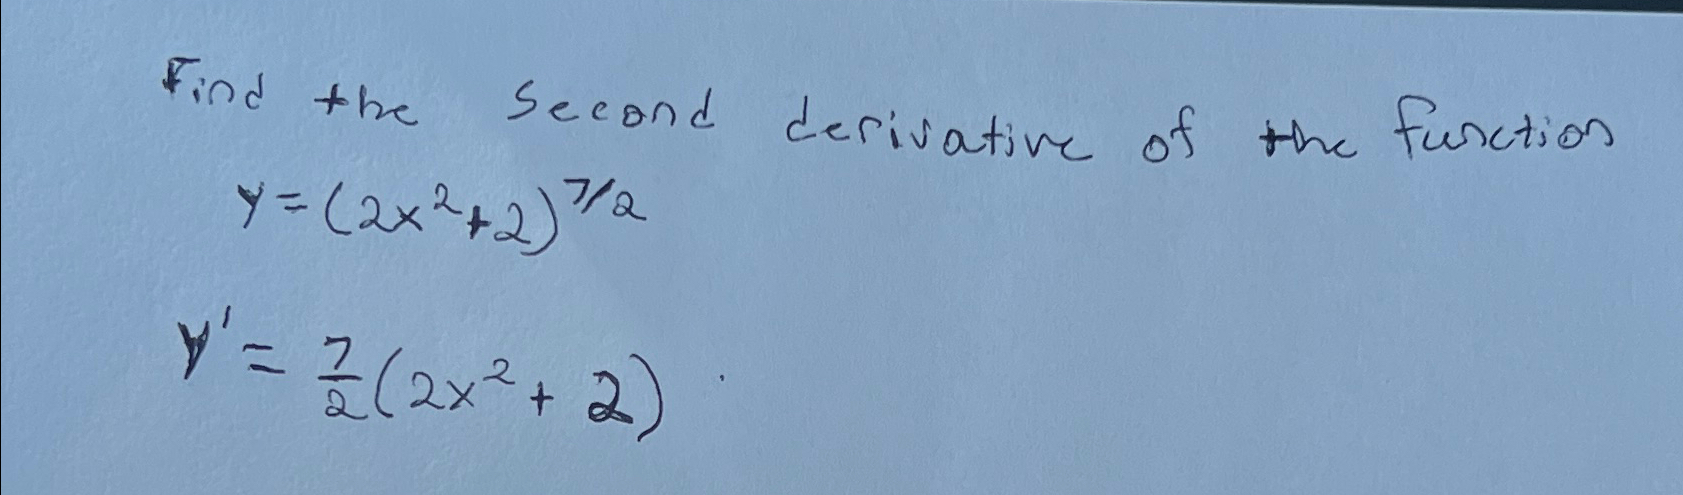 Find the second derivative of the function
y=(2x²+2)^7/2
y'=7/2(2x²+2)